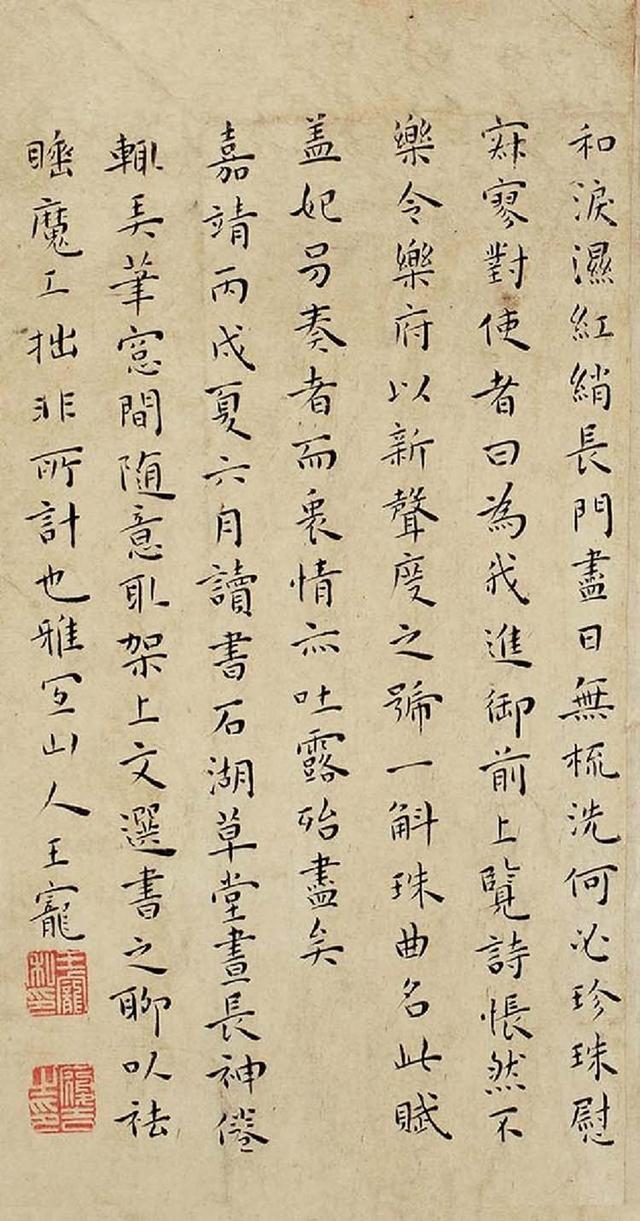 和淚濕紅綃長門盡日無梳洗何必珍珠慰
寂寥對使者曰為我進御前上覽詩悵然不
樂令樂府以新聲度之號一斛珠曲名此賦
盖妃另奏者而衷情亦吐露殆盡矣
嘉靖丙戌夏六月讀書石湖草堂晝長神倦
輒弄筆窓間随意取架上文選書之聊以祛
睡魔工拙非所計也雅宜山人王寵
王寵私印
履吉之印